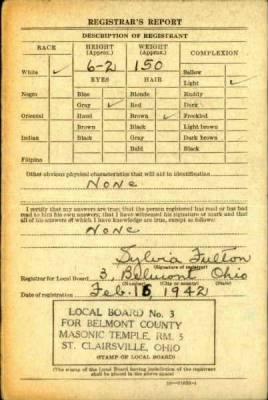 REGISTRAR'S REPORT
DESCRIPTION OF REGISTRANT
RACE HEIGHT (Approx.) WEIGHT (Approx.) COMPLEXION
White ✓ 6-2 150 Sallow
EYES HAIR Light ✓
Negro Blue Blonde Ruddy
Gray ✓ Red Dark
Oriental Hazel Brown ✓ Freckled
Brown Black Light brown
Indian Black Gray Dark brown
Bald Black
Filipino
Other obvious physical characteristics that will aid in identification
None
I certify that my answers are true; that the person registered has read or has had
read to him his own answers; that I have witnessed his signature or mark and that
all of his answers of which I have knowledge are true, except as follows:
None
Sylvia Fulton
(Signature of registrar)
Registrar for Local Board 3, Belmont Ohio
(Number) (City or county) (State)
Date of registration Feb. 16, 1942
LOCAL BOARD No. 3
FOR BELMONT COUNTY
MASONIC TEMPLE, RM. 5
ST. CLAIRSVILLE, OHIO
(STAMP OF LOCAL BOARD)
(The stamp of the Local Board having jurisdiction of the registrant
shall be placed in the above space.)